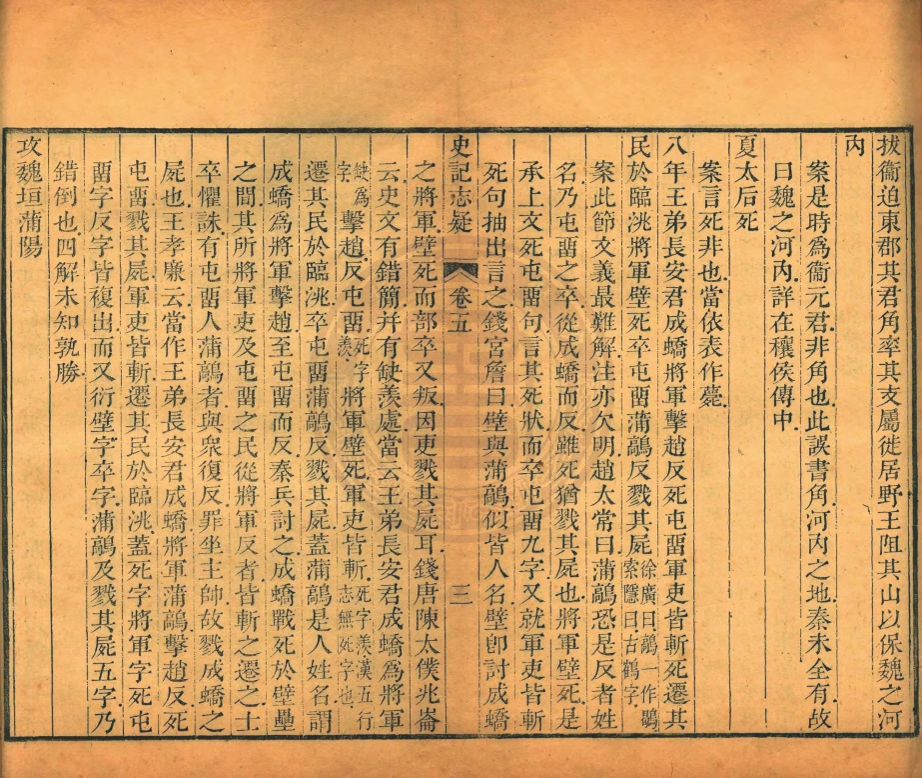 拔衞迫東郡其君角率其支屬徙居野王阻其山以保魏之河
內
案是時爲衞元君非角也此誤書角河內之地秦未全有故
曰魏之河內詳在穰侯傳中
夏太后死
案言死非也當依表作薨
八年王弟長安君成蟜將軍擊趙反死屯畱軍吏皆斬死遷其
民於臨洮將軍壁死卒屯畱蒲鶮反戮其屍徐廣曰鶮一作鶡索隱曰古鶴字
案此節文義最難解注亦欠明趙太常曰蒲鶮恐是反者姓
名乃屯畱之卒從成蟜而反雖死猶戮其屍也將軍壁死是
承上文死屯畱句言其死狀而卒屯畱九字又就軍吏皆斬
死句抽出言之錢宮詹曰壁與蒲鶮似皆人名壁卽討成蟜
史記志疑 卷五 三
之將軍壁死而部卒又叛因更戮其屍耳錢唐陳太僕兆崙
云史文有錯簡并有缺羨處當云王弟長安君成蟜爲將軍
缺爲字擊趙反屯畱死字羨將軍壁死軍吏皆斬死字羨漢五行志無死字也
遷其民於臨洮卒屯畱蒲鶮反戮其屍蓋蒲鶮是人姓名謂
成蟜爲將軍擊趙至屯畱而反秦兵討之成蟜戰死於壁壘
之閒其所將軍吏及屯畱之民從將軍反者皆斬之遷之士
卒懼誅有屯畱人蒲鶮者與衆復反罪坐主帥故戮成蟜之
屍也王孝廉云當作王弟長安君成蟜將軍蒲鶮擊趙反死
屯畱戮其屍軍吏皆斬遷其民於臨洮蓋死字將軍字死屯
畱字反字皆複出而又衍壁字卒字蒲鶮及戮其屍五字乃
錯倒也四解未知孰勝
攻魏垣蒲陽